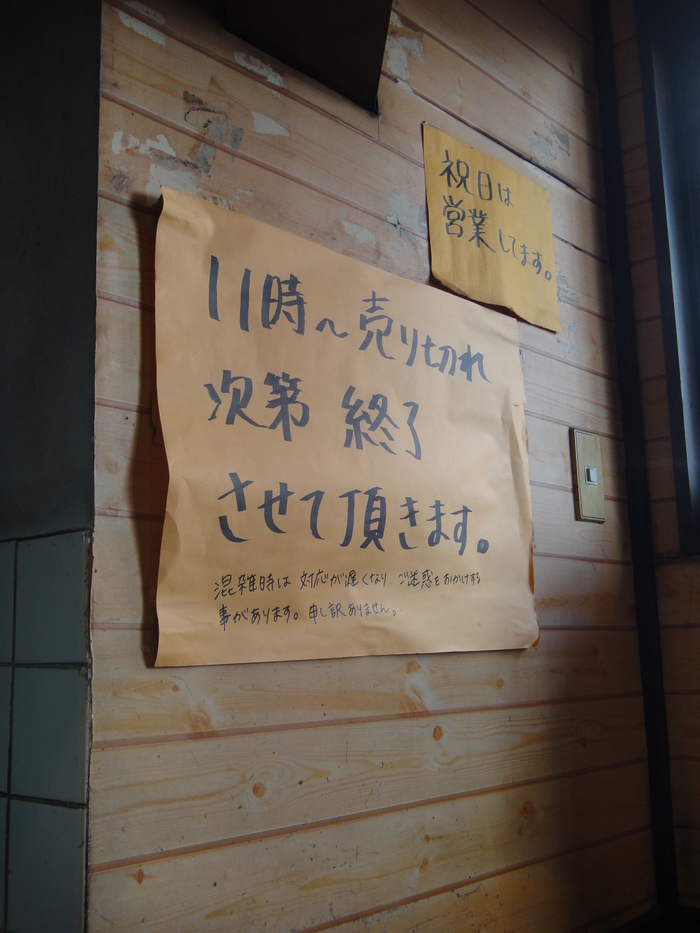 祝日は
営業してます。
11時〜売り切れ
次第 終了
させて頂きます。
混雑時は 対応が遅くなり、ご迷惑をおかけする
事があります。申し訳ありません。